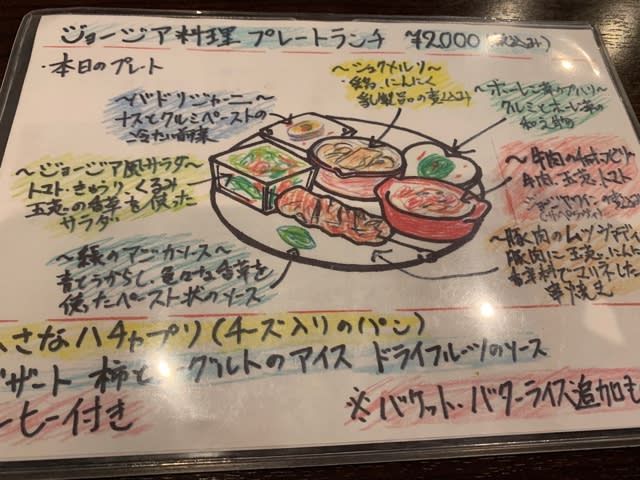 ジョージア料理 プレートランチ ¥2000(税込み)
・本日のプレート
〜バドリジャーニ〜
ナスとクルミペーストの
冷たい前菜
〜シュクメルリ〜
鶏、にんにく
乳製品の煮込み
〜ホーレン草のプハリ〜
クルミとホーレン草の
和え物
〜ジョージア風サラダ〜
トマト・きゅうり、くるみ
玉葱の香草を使った
サラダ
牛肉、玉葱、トマト
〜緑のアジカソース〜
青とうがらし、色々な香草を
使ったペースト状のソース
豚肉に玉葱、にんにく
香辛料でマリネした
串焼き
さなハチャプリ(チーズ入りのパン)
ザート 柿と ーグルトのアイス ドライフルーツのソース
ーヒー付き
※バケット・バターライス追加も